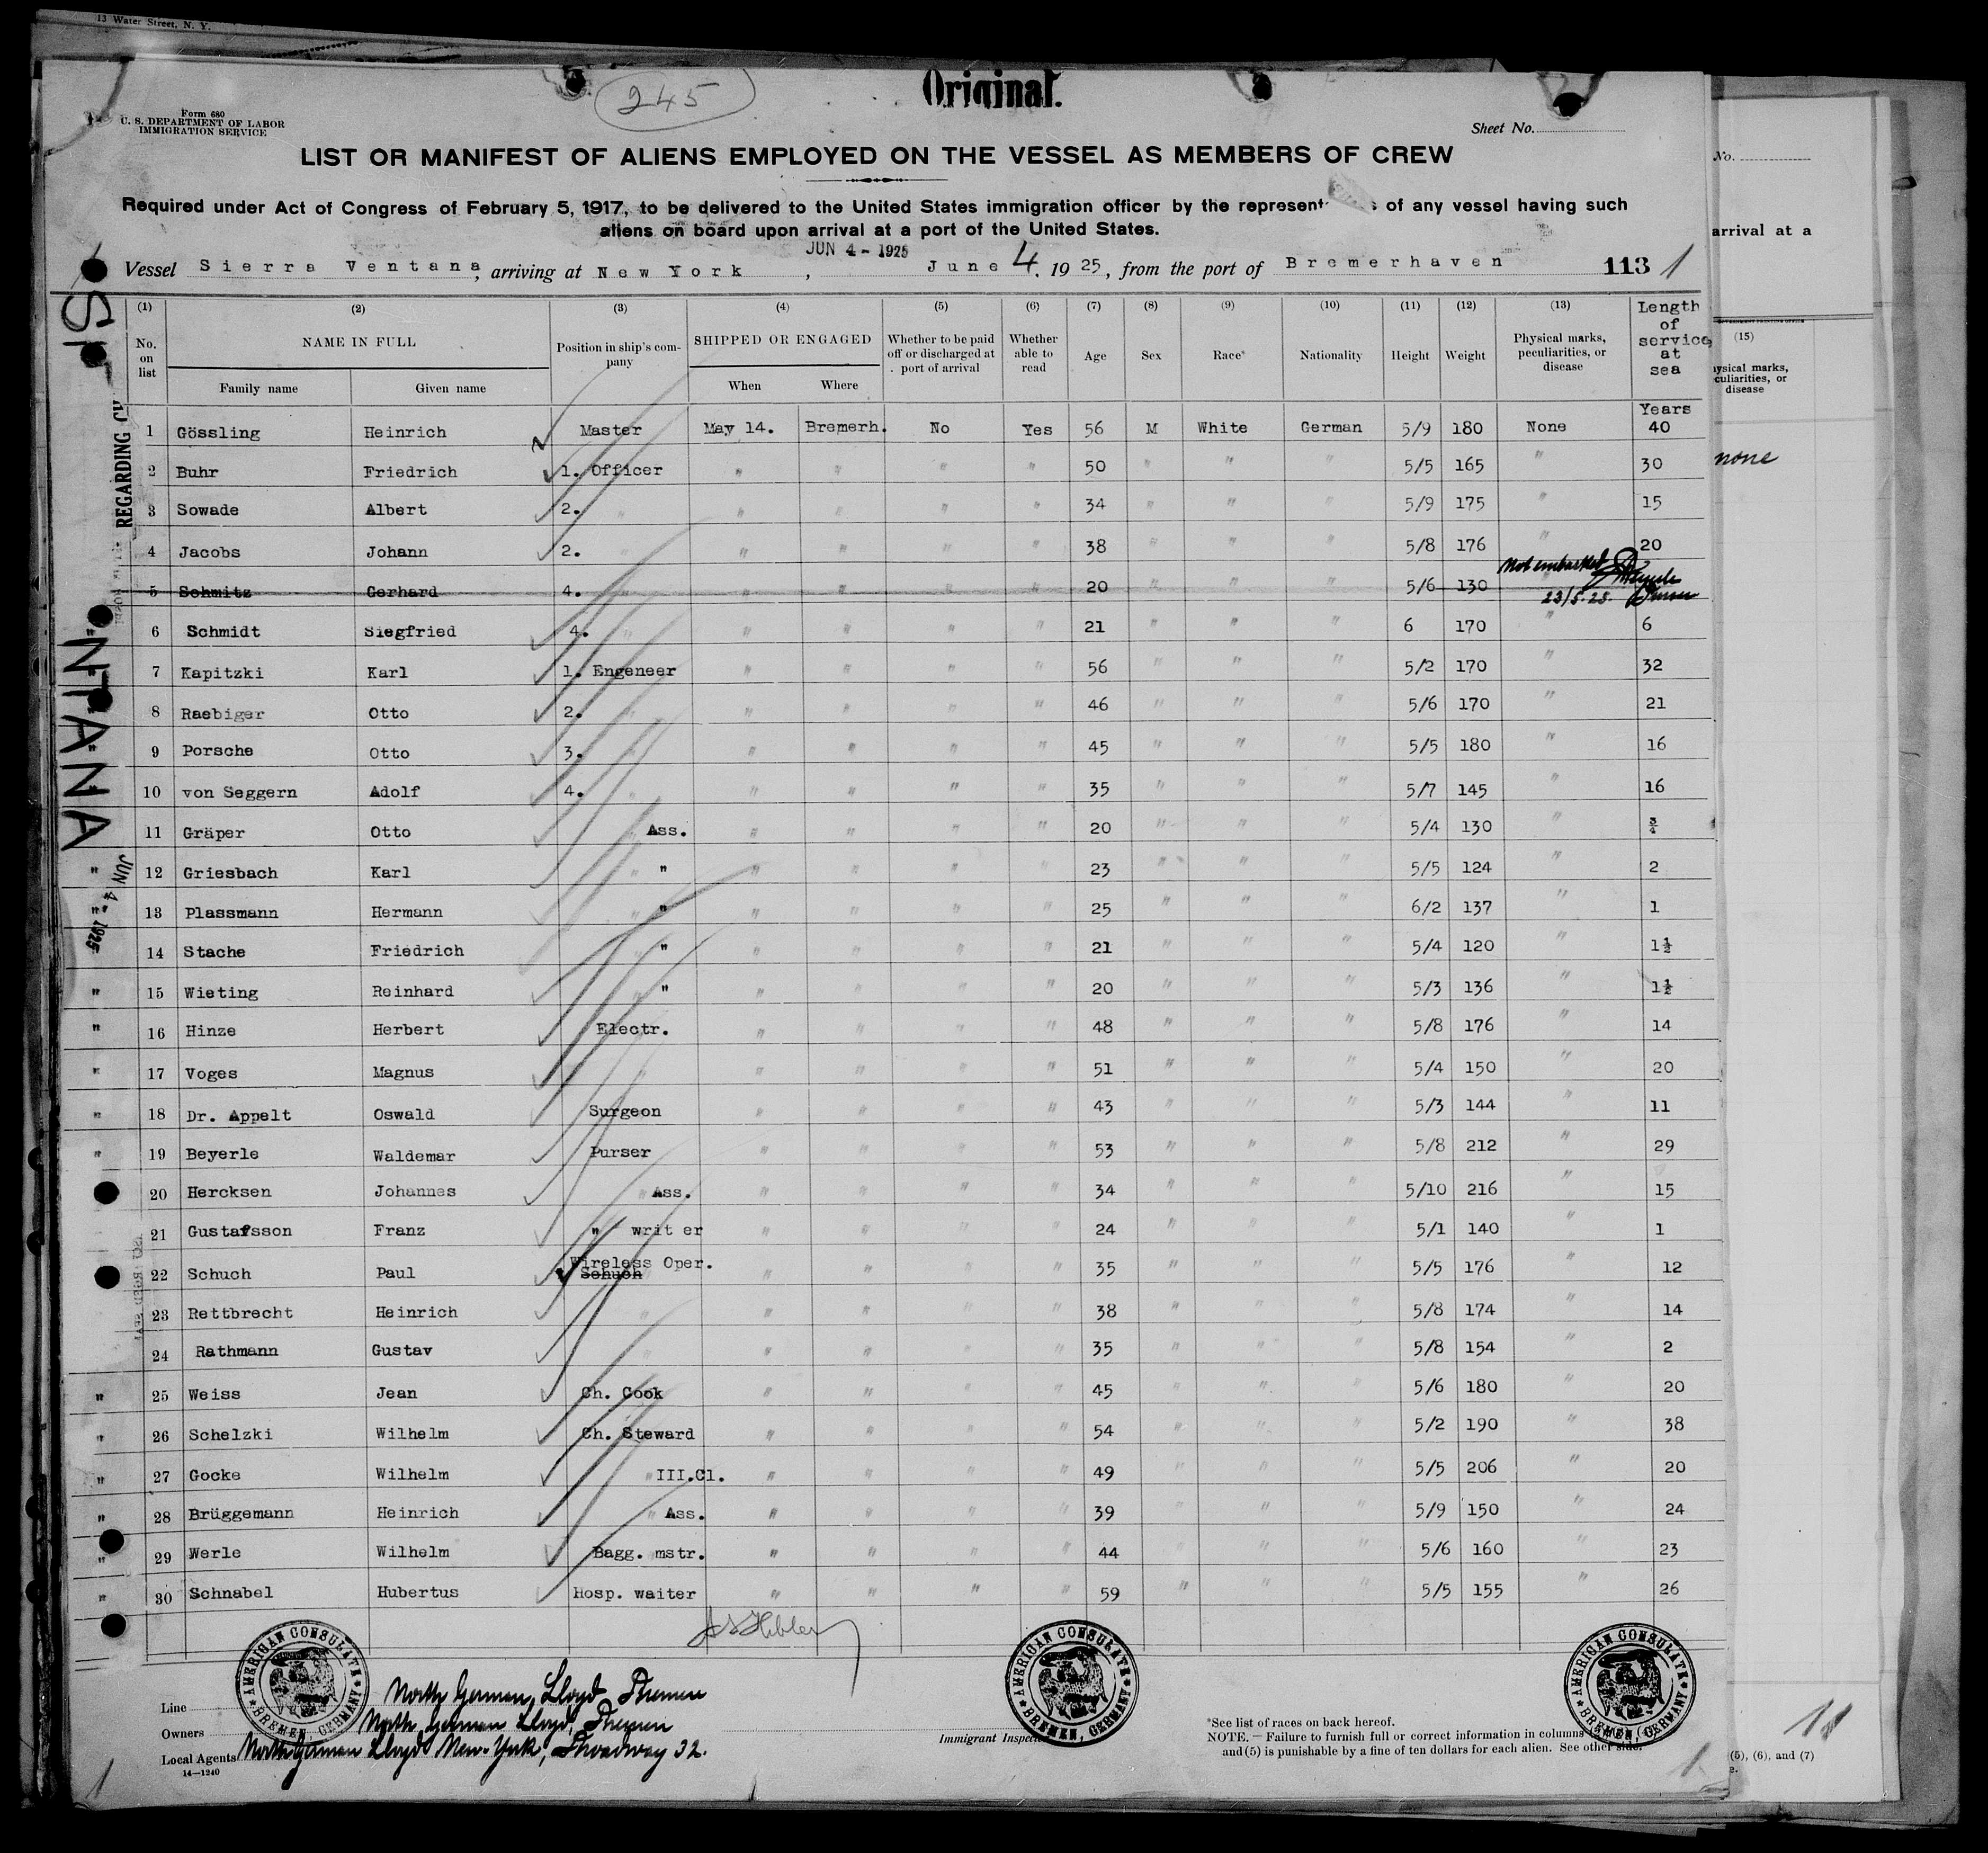 13 Water Street, N. Y.
245
Original.
Form 680
U. S. DEPARTMENT OF LABOR
IMMIGRATION SERVICE
Sheet No.
LIST OR MANIFEST OF ALIENS EMPLOYED ON THE VESSEL AS MEMBERS OF CREW
Required under Act of Congress of February 5, 1917, to be delivered to the United States immigration officer by the represent s of any vessel having such
aliens on board upon arrival at a port of the United States.
JUN 4 - 1925
Vessel Sierra Ventana, arriving at New York, June 4. 1925, from the port of Bremerhaven 113 1
(1) (2) (3) (4) (5) (6) (7) (8) (9) (10) (11) (12) (13) Length of service at sea
No. on list NAME IN FULL Position in ship's company SHIPPED OR ENGAGED Whether to be paid off or discharged at port of arrival Whether able to read Age Sex Race* Nationality Height Weight Physical marks, peculiarities, or disease
Family name Given name When Where
Years
1 Gössling Heinrich Master May 14. Bremerh. No Yes 56 M White German 5/9 180 None 40
2 Buhr Friedrich 1. Officer " " " " 50 " " " 5/5 165 " 30
3 Sowade Albert 2. " " " " " 34 " " " 5/9 175 " 15
4 Jacobs Johann 2. " " " " " 38 " " " 5/8 176 " 20
Not embarked
5 Schmitz Gerhard 4. " " " " 20 " " " 5/6 130
23/5.25. Purser
6 Schmidt Siegfried 4. " " " " " 21 " " " 6 170 " 6
7 Kapitzki Karl 1. Engeneer " " " " 56 " " " 5/2 170 " 32
8 Raebiger Otto 2. " " " " " 46 " " " 5/6 170 " 21
9 Porsche Otto 3. " " " " " 45 " " " 5/5 180 " 16
10 von Seggern Adolf 4. " " " " " 35 " " " 5/7 145 " 16
11 Gräper Otto " Ass. " " " " 20 " " " 5/4 130 " ¾
" 12 Griesbach Karl " " " " " " 23 " " " 5/5 124 " 2
" 13 Plassmann Hermann " " " " " " 25 " " " 6/2 137 " 1
" 14 Stache Friedrich " " " " " " 21 " " " 5/4 120 " 1½
" 15 Wieting Reinhard " " " " " " 20 " " " 5/3 136 " 1½
" 16 Hinze Herbert Electr. " " " " 48 " " " 5/8 176 " 14
" 17 Voges Magnus " " " " " 51 " " " 5/4 150 " 20
" 18 Dr. Appelt Oswald Surgeon " " " " 43 " " " 5/3 144 " 11
" 19 Beyerle Waldemar Purser " " " " 53 " " " 5/8 212 " 29
20 Hercksen Johannes " Ass. " " " " 34 " " " 5/10 216 " 15
21 Gustafsson Franz " writer " " " " 24 " " " 5/1 140 " 1
22 Schuch Paul Wireless Oper. Schuch " " " " 35 " " " 5/5 176 " 12
23 Rettbrecht Heinrich " " " " " 38 " " " 5/8 174 " 14
24 Rathmann Gustav " " " " " 35 " " " 5/8 154 " 2
" 25 Weiss Jean Ch. Cook " " " " 45 " " " 5/6 180 " 20
" 26 Schelzki Wilhelm Ch. Steward " " " " 54 " " " 5/2 190 " 38
" 27 Gocke Wilhelm " III.Cl. " " " " 49 " " " 5/5 206 " 20
" 28 Brüggemann Heinrich " Ass. " " " " 39 " " " 5/9 150 " 24
" 29 Werle Wilhelm Bagg. mstr. " " " " 44 " " " 5/6 160 " 23
" 30 Schnabel Hubertus Hosp. waiter " " " " 59 " " " 5/5 155 " 26
AMERICAN CONSULATE BREMEN, GERMANY
AMERICAN CONSULATE BREMEN, GERMANY
AMERICAN CONSULATE BREMEN, GERMANY
Line North German Lloyd Bremen
Owners North German Lloyd, Bremen
Local Agents North German Lloyd New-York, Broadway 32.
14—1240
Immigrant Inspec
*See list of races on back hereof.
NOTE.—Failure to furnish full or correct information in columns
and (5) is punishable by a fine of ten dollars for each alien. See other side.
1
1
REGARDING
NTANA
JUN 4 - 1925
No.
arrival at a
(15)
ysical marks,
culiarities, or
disease
none
11
(5), (6), and (7)
e.